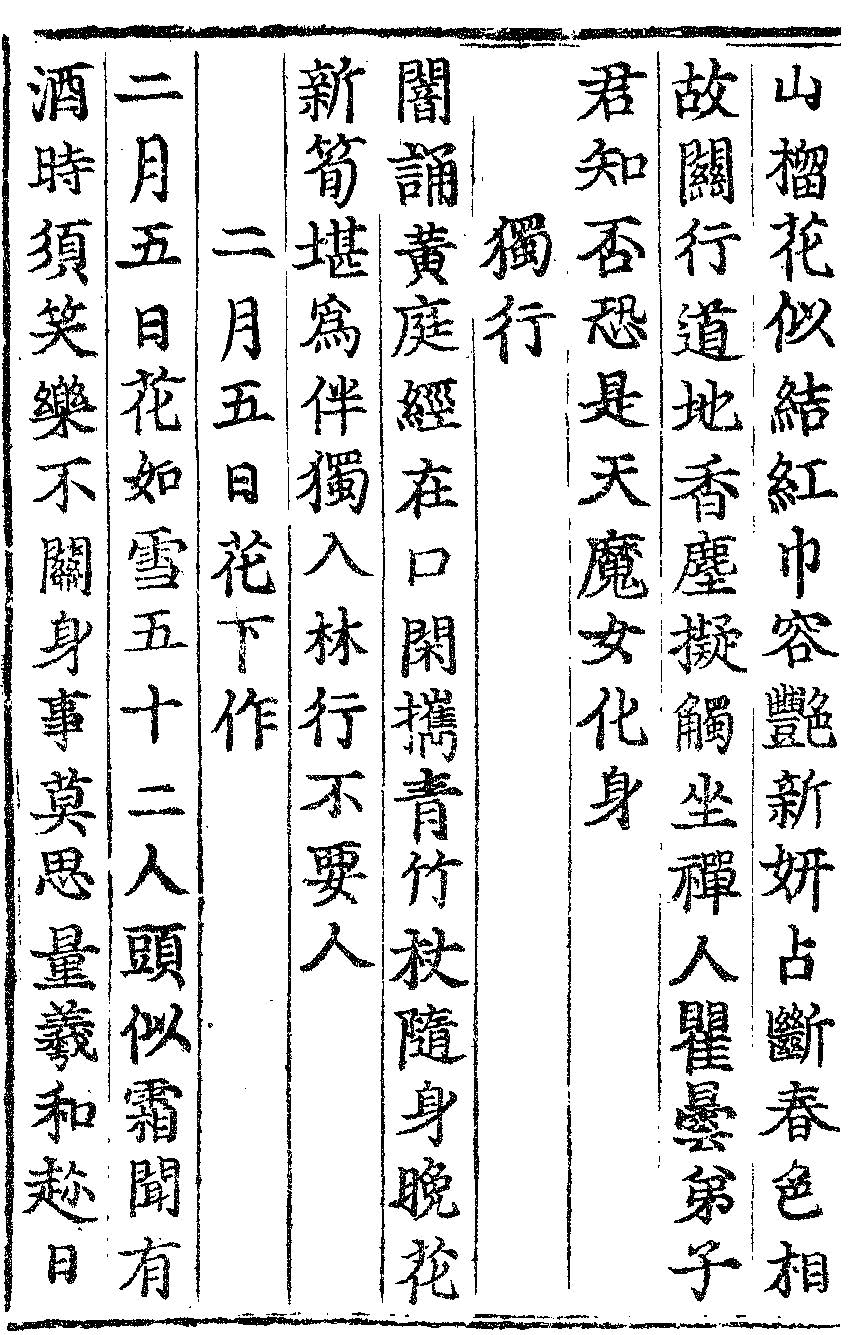 山榴花似結紅巾容豔新妍占斷春色相
故關行道地香塵擬觸坐禪人瞿曇弟子
君知否恐是天魔女化身
獨行
闇誦黃庭經在口閑攜青竹杖隨身晚花
新筍堪爲伴獨入林行不要人
二月五日花下作
二月五日花如雪五十二人頭似霜聞有
酒時須笑樂不關身事莫思量羲和趂日